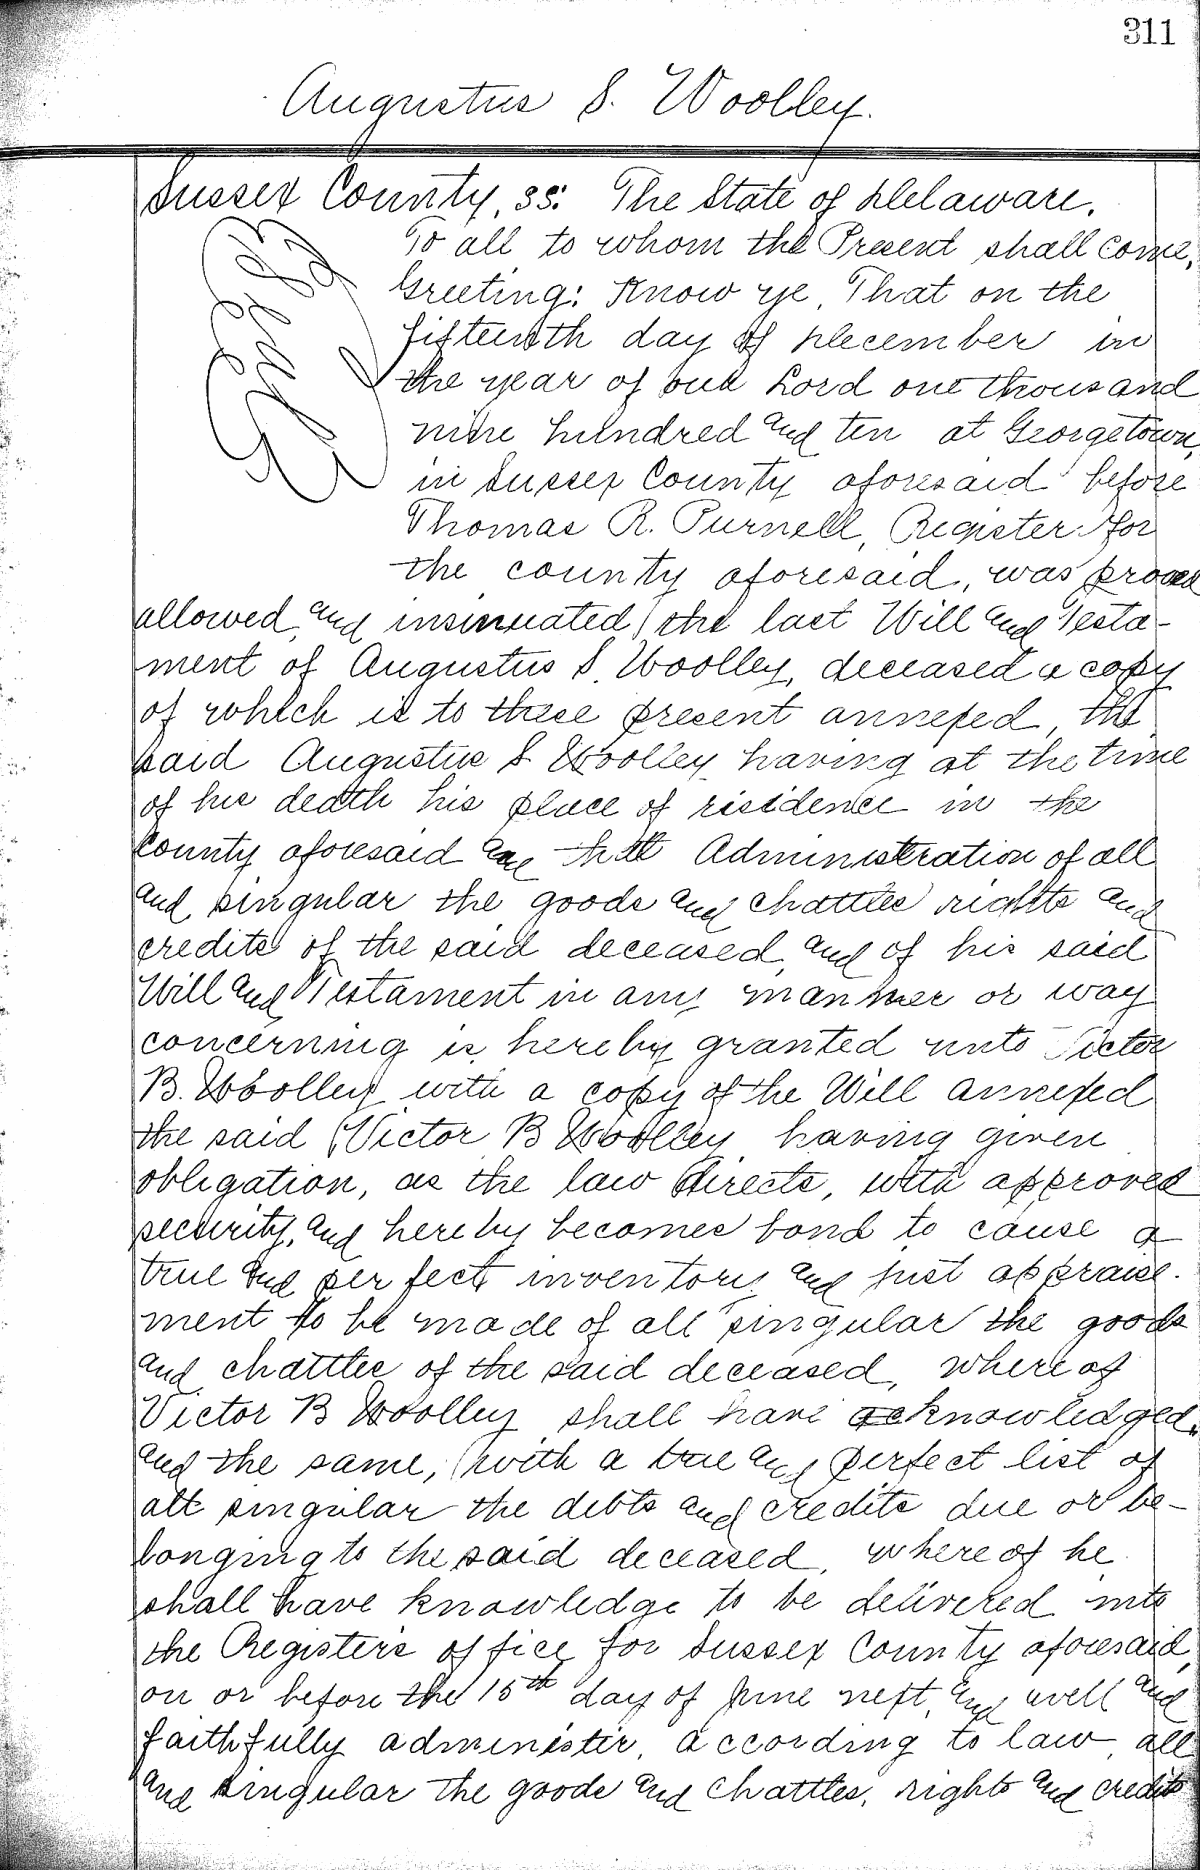 311
Augustus S. Woolley.
Sussex County, ss: The State of Delaware.
To all to whom the Present shall come,
Greeting: Know ye, That on the
fifteenth day of December in
the year of our Lord one thousand
nine hundred and ten at Georgetown,
in Sussex County aforesaid before
Thomas R. Purnell, Register for
the county aforesaid, was proved
allowed, and insinuated the last Will and Testa-
ment of Augustus S. Woolley, deceased a copy
of which is to these present annexed, the
said Augustus S Woolley having at the time
of his death his place of risidence in the
County aforesaid and that Administration of all
and singular the goods and chattles rights and
credits of the said deceased, and of his said
Will and Testament in any manner or way
concerning is hereby granted unto Victor
B. Woolley with a copy of the Will annexed
the said Victor B Woolley having given
obligation, as the law directs, with approved
security, and hereby becomes bond to cause a
true and perfect inventory and just appraise-
ment to be made of all singular the goods
and chattles of the said deceased, where of
Victor B Woolley shall have acknowledged,
and the same, with a true and perfect list of
all singular the debts and credits due or be-
longing to the said deceased, where of he
shall have knowledge to be delivered into
the Register's office for Sussex County aforesaid,
on or before the 15th day of June next, and well and
faithfully administer, according to law, all
and singular the goods and chattles, rights and credits